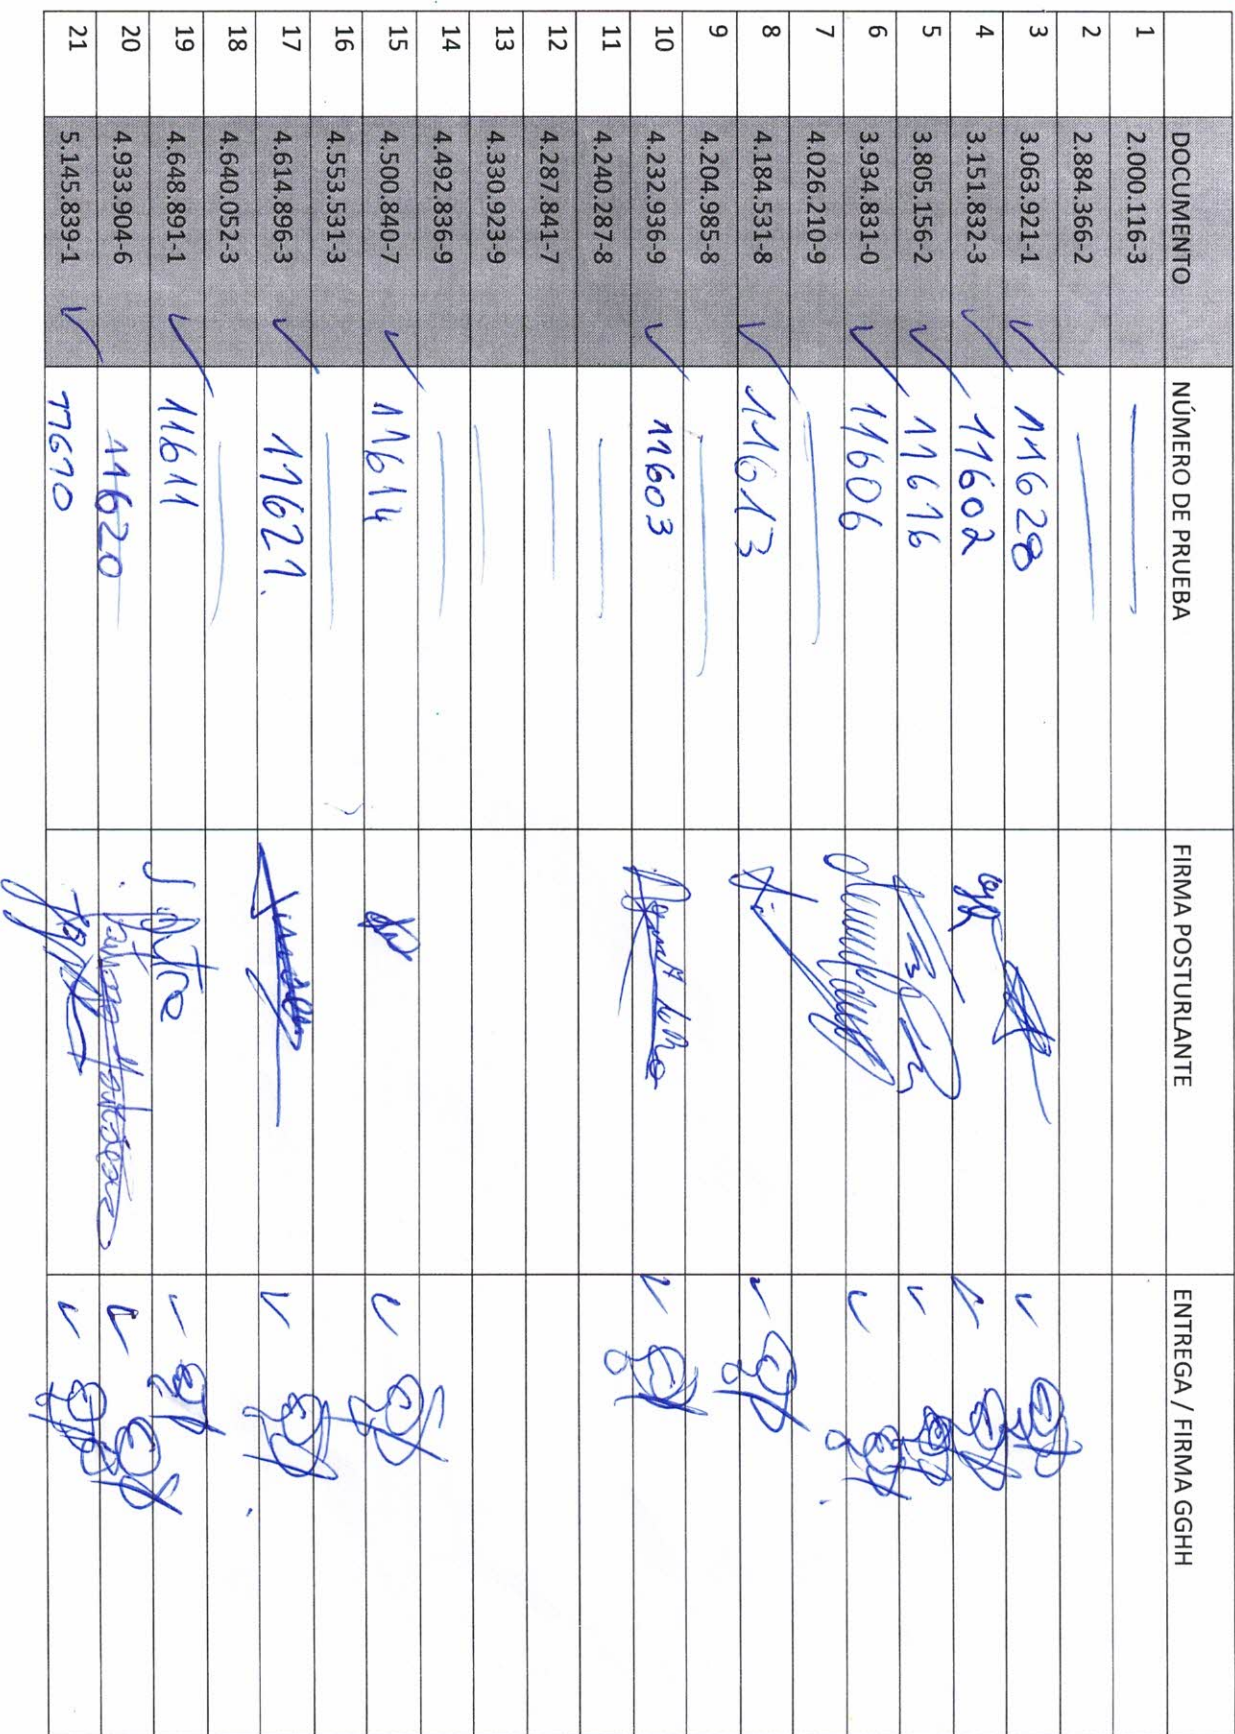 DOCUMENTO NÚMERO DE PRUEBA FIRMA POSTURLANTE ENTREGA / FIRMA GGHH
1 2.000.116-3
2 2.884.366-2
3 3.063.921-1 ✓ 11628 ✓
4 3.151.832-3 ✓ 11602 ✓
5 3.805.156-2 ✓ 11616 ✓
6 3.934.831-0 ✓ 11606 ✓
7 4.026.210-9
8 4.184.531-8 ✓ 11613 ✓
9 4.204.985-8
10 4.232.936-9 ✓ 11603 ✓
11 4.240.287-8
12 4.287.841-7
13 4.330.923-9
14 4.492.836-9
15 4.500.840-7 ✓ 11614 ✓
16 4.553.531-3
17 4.614.896-3 ✓ 11621 ✓
18 4.640.052-3
19 4.648.891-1 ✓ 11611 ✓
20 4.933.904-6 11620 ✓
21 5.145.839-1 ✓ 11610 ✓